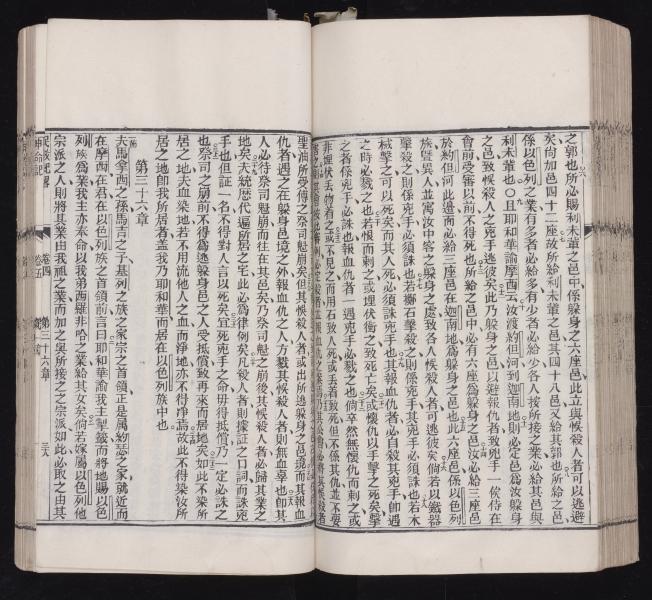 之郭也所必賜利未輩之邑中係躲身之六座邑此立與悞殺人者可以逃避
矣尚加邑四十二座故所給利未輩之邑其四十八邑又給其郭也所給之邑
係以色列之業有多者必給多有少者必給少各人按所接之業必給其邑與
利未輩也○且耶和華諭摩西云汝渡約但河到迦南地則必定邑爲汝躲身
之邑致悞殺人之兇手逃彼矣此乃躲身之邑以避報仇者致兇手一俟侍在
會前受審以前不得死也所給之邑中必有六座爲躲身之邑汝必給三座邑
於約但河此邊而必給三座邑在迦南地爲躲身之邑也此六座邑係以色列
族曁異人並寓汝中客之躲身之處致各人悞殺人者可逃彼矣倘若以鐵器
擊殺之則係兇手必須誅也若擲石擊殺之則係兇手其兇手必須誅也若木
械擊之可以死矣而其人死必須誅兇手也其報血仇者必自殺其兇手卽遇
之時必戮之也若恨而刺之或埋伏衝之致死亡矣或懷仇以手擊之死矣擊
之者係兇手必誅也報血仇者一遇兇手必戮之也倘卒然無懷仇而刺之或
非埋伏丟物着之或不見之而用石致人死或丟着致死但不係其仇並不要
聖油所受傅之祭司魁崩矣但其悞殺人者或出所逃躲身之邑境而其報血
仇者遇之在躲身邑境之外報血仇之人方戮其悞殺人者則無血辜也卽其
人必待祭司魁崩而往在其邑矣乃祭司魁之崩後其悞殺人者必歸其業之
地矣夫統歷代遍所居之宅此必爲律例矣凡殺人者則據証之口詞而誅兇
手也但証一名不得對人言以死矣宜死兇手之命毋得抵償乃一定必誅之
也祭司之崩前不得爲逃躲身邑之人受抵償致再來而居地矣如此不染所
居之地夫血染地若不用流他人之血而淨地亦不得淨焉故此不得染汝所
居之地卽我所居者蓋我乃耶和華而居在以色列族中也
第三十六章
夫馬拿西之孫馬吉之子基列之族之家宗之首領正是屬約瑟之家就近而
在摩西在君在以色列族之首領前言曰耶和華諭我主掣籤而將地賜以色
列族爲業我主亦奉命以我弟西羅非哈之業給其女矣倘若嫁屬以色列他
宗派之人則將其業由我祖之業而加之與所接之之宗派如此必取之由其
卷四
第三十六章